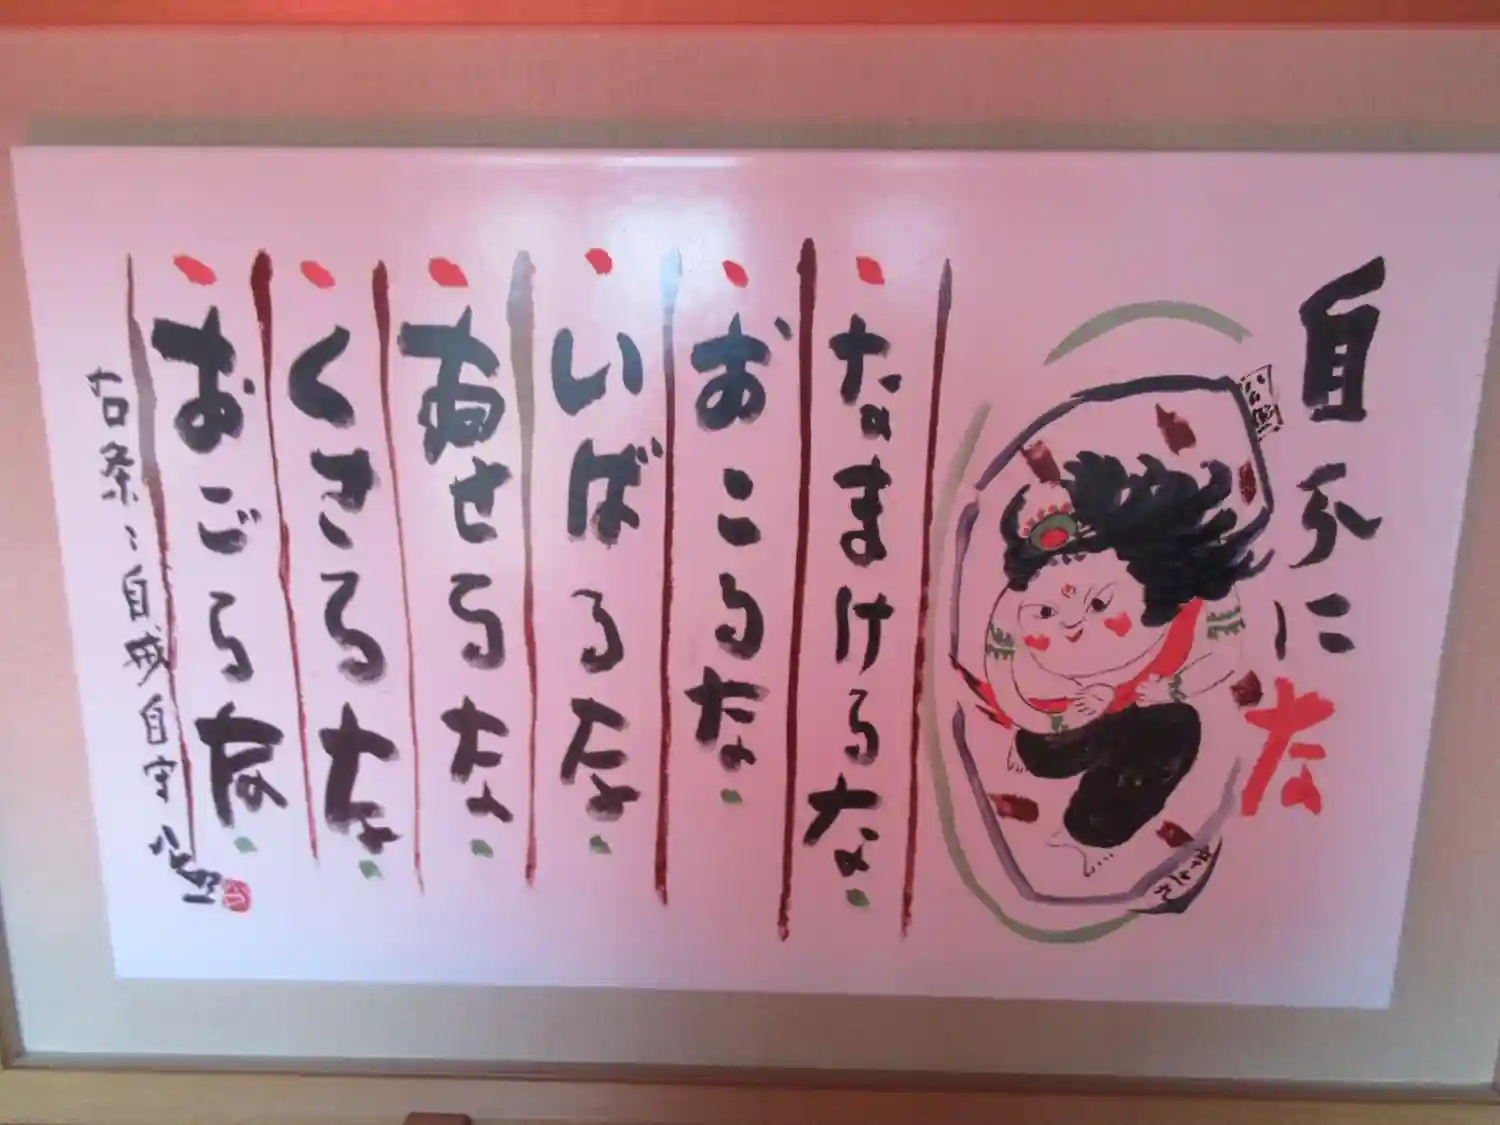 自分に
な
なまけるな
おこるな
いばるな
あせるな
くさるな
おごるな
右条々自戒自守